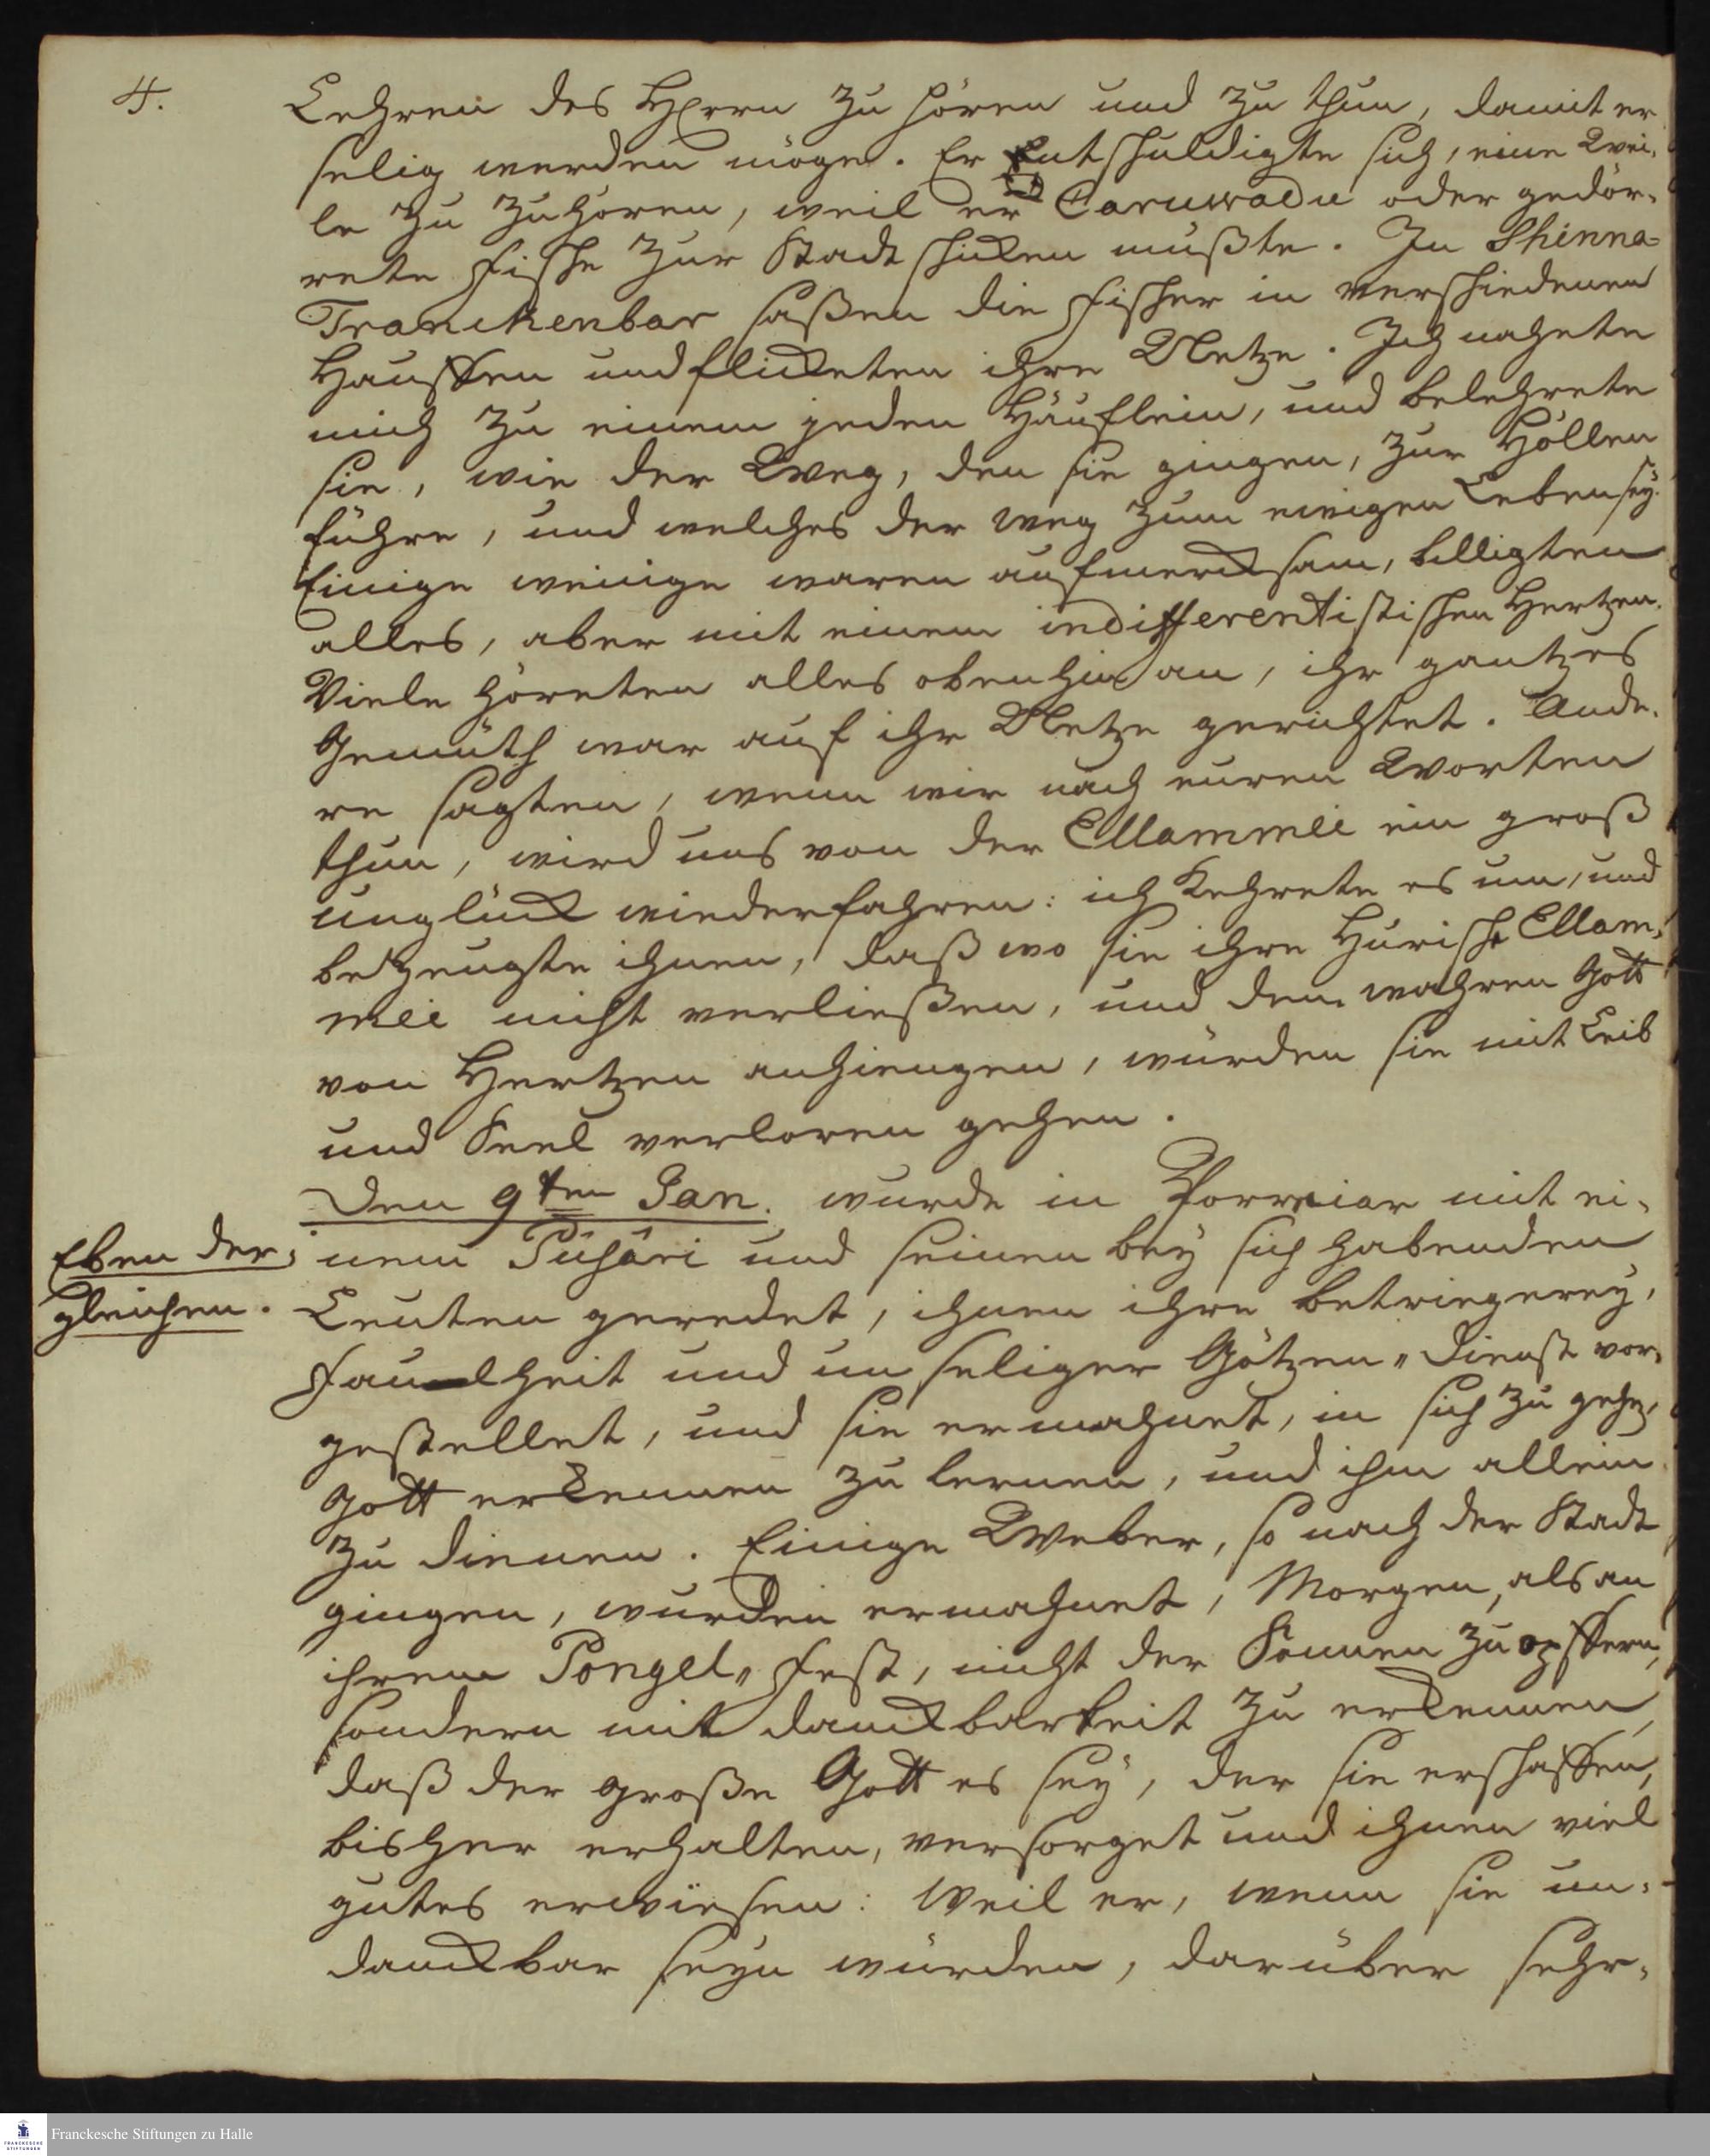 4.
Lehren des HErrn zu hören und zu thun, damit er
selig werden möge. Er Entschuldigte sich, eine Wei,
le zu zuhören, weil er Caruwadu oder gedör,
rete Fische zur Stadt schicken mußte. In Shinna-
Tranckenbar saßen die Fischer in verschiedenen
Hauffen und flickten ihre Netze. Ich nahete
mich zu einem jeden Häuflein, und belehrete
sie, wie der Weg, den sie gingen, zur Höllen
führe, und welches der Weg zum ewigen Leben sey.
Einige wenige waren aufmercksam, billigten
alles, aber mit einem indifferentistischen Hertzen.
Viele höreten alles obenhin an, ihr gantzes
Gemüth war auf ihr Netze gerichtet. Ande,
re sagten, wenn wir nach euren Worten
thun, wird uns von der Ellammei ein groß
unglück wiederfahren: ich kehrete es um, und
bezeugte ihnen, daß wo sie ihre Hurische Ellam,
mei nicht verließen, und dem wahren Gott
von Hertzen anhiengen, würden sie mit Leib
und Seel verloren gehen.
Den 9ten Jan. wurde in Porreiar mit ei,
Eben der,
gleichen.
nem Pusâri und seinen bey sich habenden
Leuten geredet, ihnen ihre betriegerey,
Faulheit und unseliger Götzen„Dienst vor,
gestellet, und sie ermahnet, in sich zu gehen,
Gott erkennen zu lernen, und ihm allein
zu dienen. Einige Weber, so nach der Stadt
gingen, wurden ermahnet, Morgen, als an
ihrem Pongel„Fest, nicht der Sonnen zu opffern,
sondern mit danckbarkeit zu erkennen,
daß der große Gott es sey, der sie erschaffen,
bisher erhalten, versorget und ihnen viel
gutes erwiesen: Weil er, wenn sie un,
danckbar seyn würden, darüber sehr,
Franckesche Stiftungen zu Halle
FRANCKESCHE
STIFTUNGEN